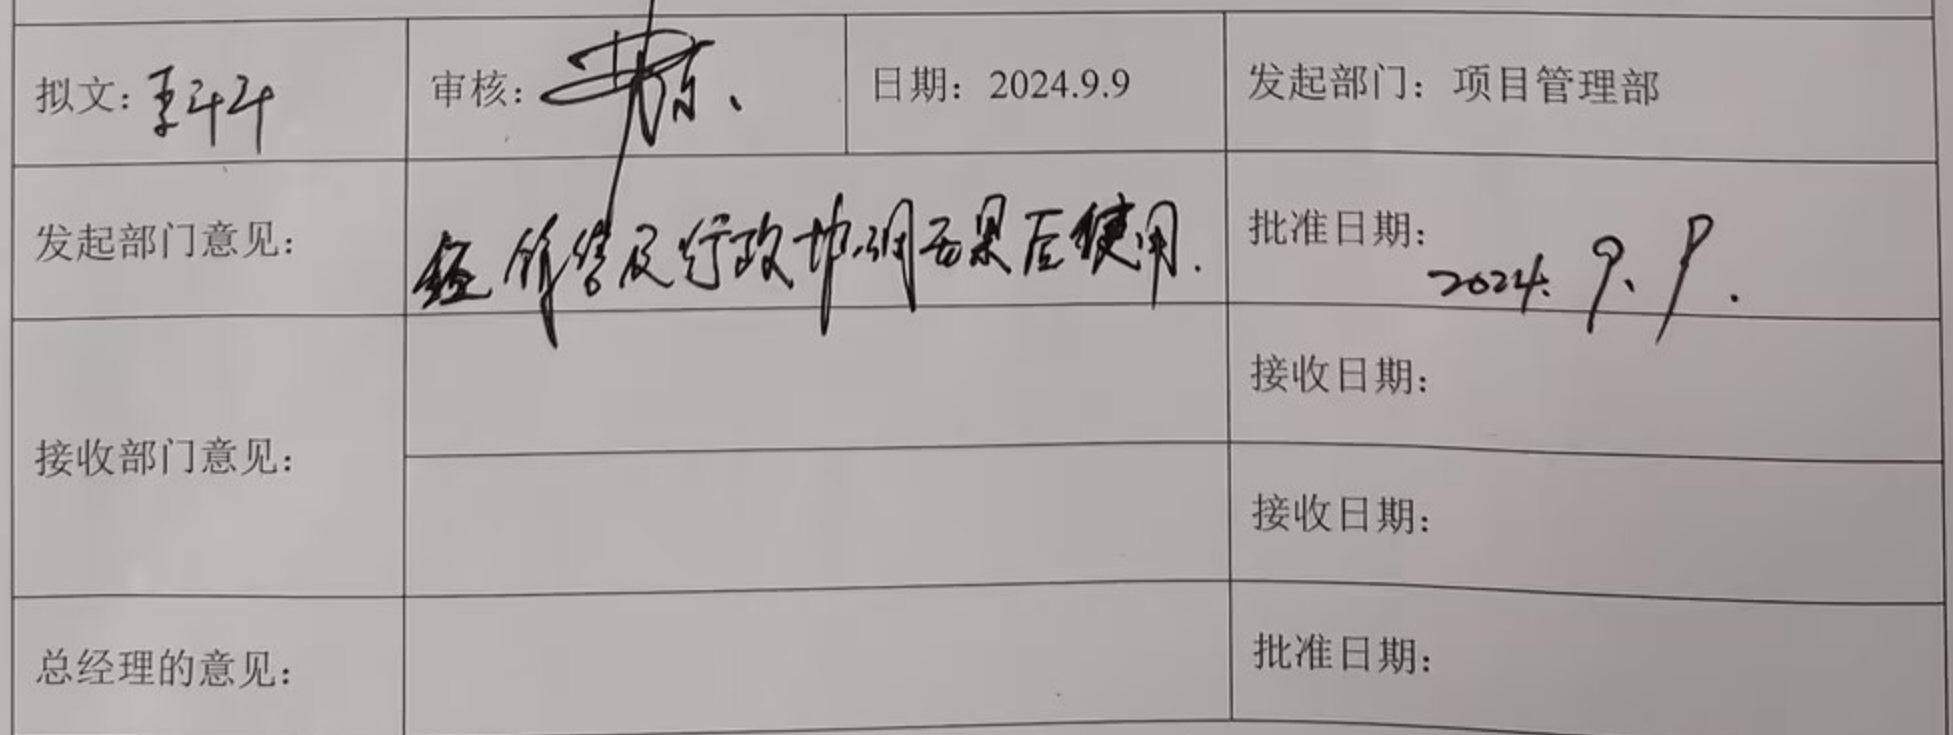 拟文：王斗斗 审核： 日期：2024.9.9 发起部门：项目管理部
发起部门意见：经销售及行政协调无果后使用. 批准日期：2024.9.9.
接收日期：
接收部门意见：
接收日期：
总经理的意见： 批准日期：